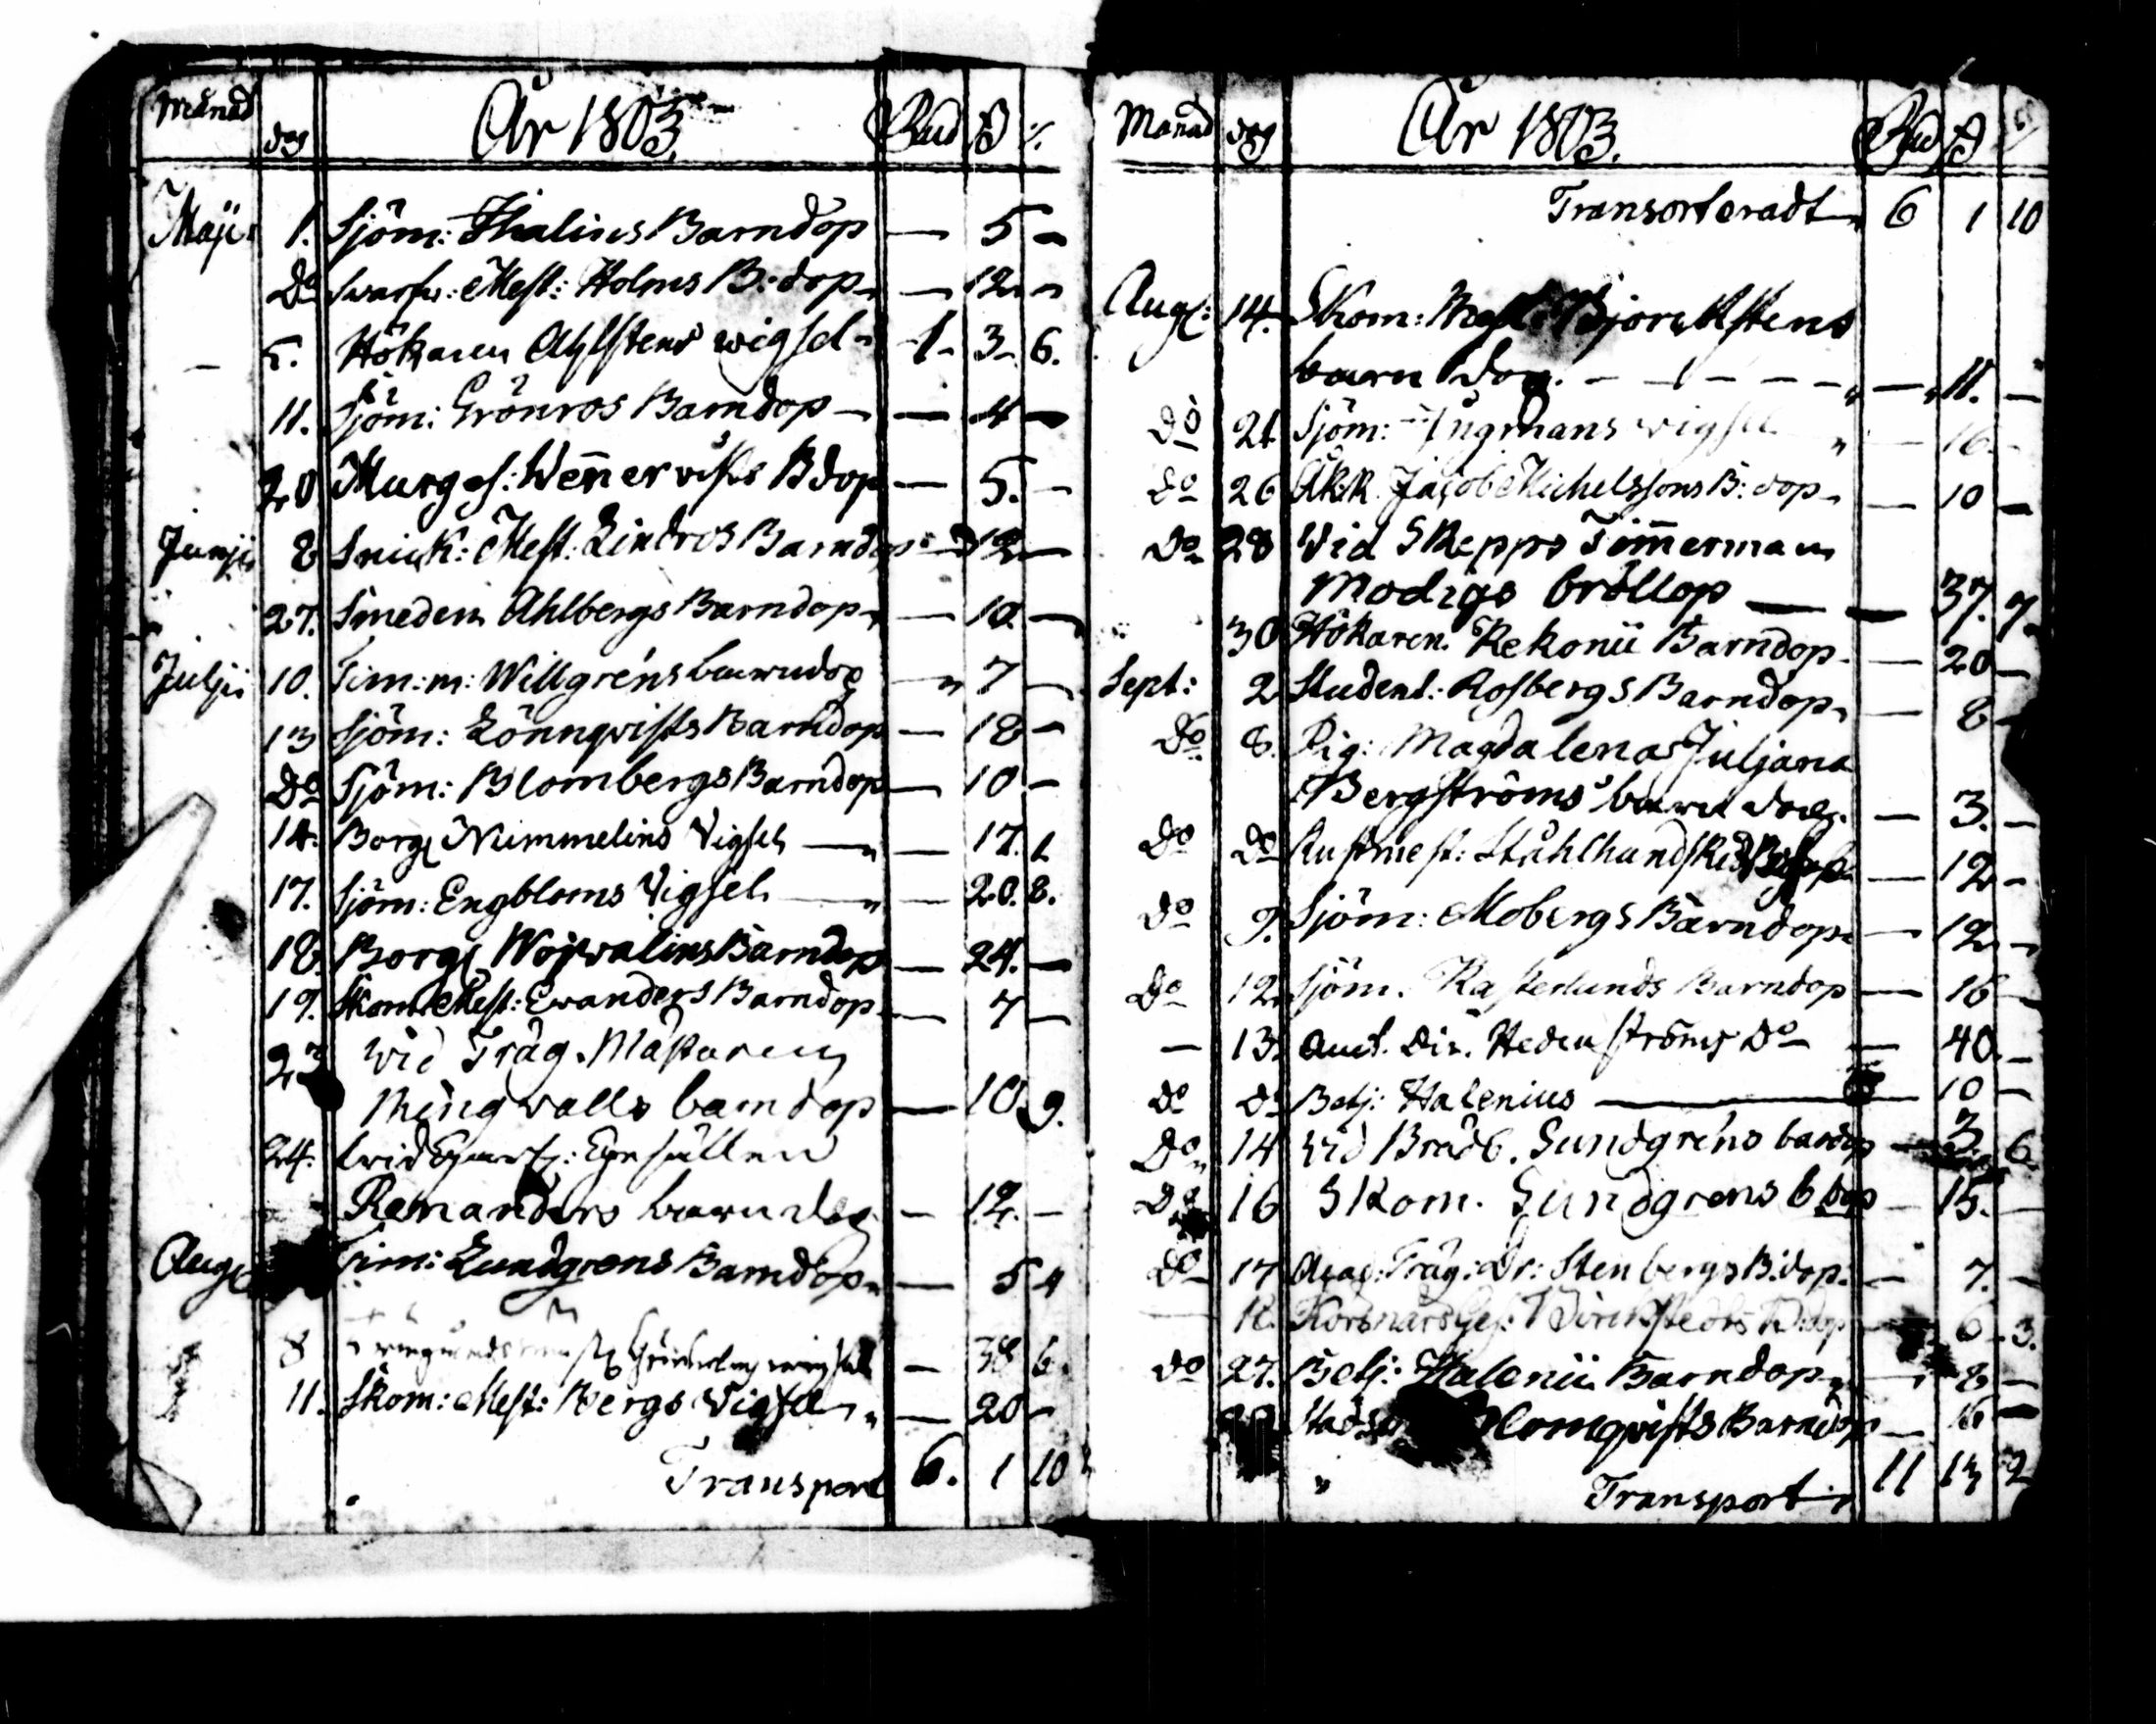 Månad dag År 1803. Rd ß %
Maji 1. Sjöm: Thalins Barndop — 5 —
Do Swarfw: Mest: Holms B: dop — 12 —
5. Hökaren Ahlstens wigsel 1 3 6.
11. Sjöm: Grönros Barndop — 4 —
20 Murges: Wen̄erqvists Bdop — 5. —
Junji 8 Snick: Mest: Lindros Barndop — 12 —
27. Smeden Ahlbergs Barndop — 10. —
Julji 10. Tim:m: Willgréns barndop — 7 —
13 Sjöm: Lönnqvists Barndop — 18 —
Do Sjöm: Blombergs Barndop — 10 —
14. Borg Nimmelins Vigsel — 17. 1
17. Sjöm: Engbloms Vigsel — 20. 8.
18. Borg Barndop — 24. —
19. Skom: Mest: Evanders Barndop — 7 —
23 wid Träg. Mästaren
Mengwalls barndop — 10 9.
24. wid
Renanders barndop — 12. —
Aug Tim: Lundgrens Barndop — 5 4
8 wigsel — 38 6.
11. Skom: Mest: Bergs Vigsel — 20 —
Transport 6. 1 10
Månad dag År 1803. Rd ß
Transorteradt 6 1 10
Aug: 14. Skom: Mest: Björckstens
barn dop. — 11. —
do 21 Sjöm: Jngmans wigsel — 16. —
do 26 Åkk. Jacob Michelssons B: dop — 10 —
Do 28 Vid Skepps Tim̄erman
Modigs bröllop — 37. 7.
30 Hökaren. Rekonii Barndop — 20 —
Sept: 2 Student: Rosbergs Barndop — 8 —
Do 8. Pig: Magdalenas Juljana
Bergströms barn dop. — 3. —
Do Do Rustmest: Stålhandskes — 12 —
Do 9. Sjöm: Mobergs Barndop — 12 —
Do 12 Sjöm. Kasterlunds Barndop — 16 —
— 13. Auct. Dir. Hedenströms Do — 40. —
Do Do Betj: Halenius — 10 —
Do 14 vid Brädb. Sundgréns bardop — 3. 6.
Do 16 Skom. Sundgrens b dop — 15. —
Do 17 Acad: Träg: Dr: Stenbergs B: dop — 7. —
— 18. B: dop — 6. 3.
do 27. Betj: Halenii Barndop — 8 —
Blomqvists Barndop — 16 —
Transport 11 13 2